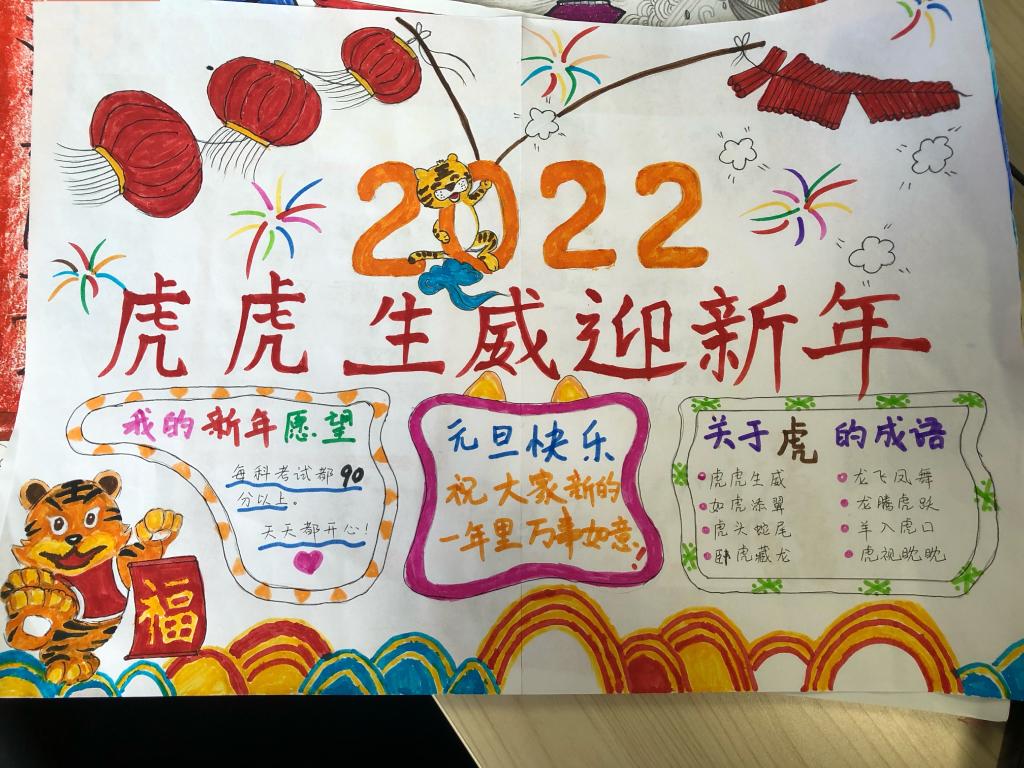 2022
虎虎生威迎新年
我的新年愿望
每科考试都90
分以上。
天天都开心!
元旦快乐
祝大家新的
一年里万事如意!
关于虎的成语
虎虎生威
如虎添翼
虎头蛇尾
卧虎藏龙
龙飞凤舞
龙腾虎跃
羊入虎口
虎视眈眈
福